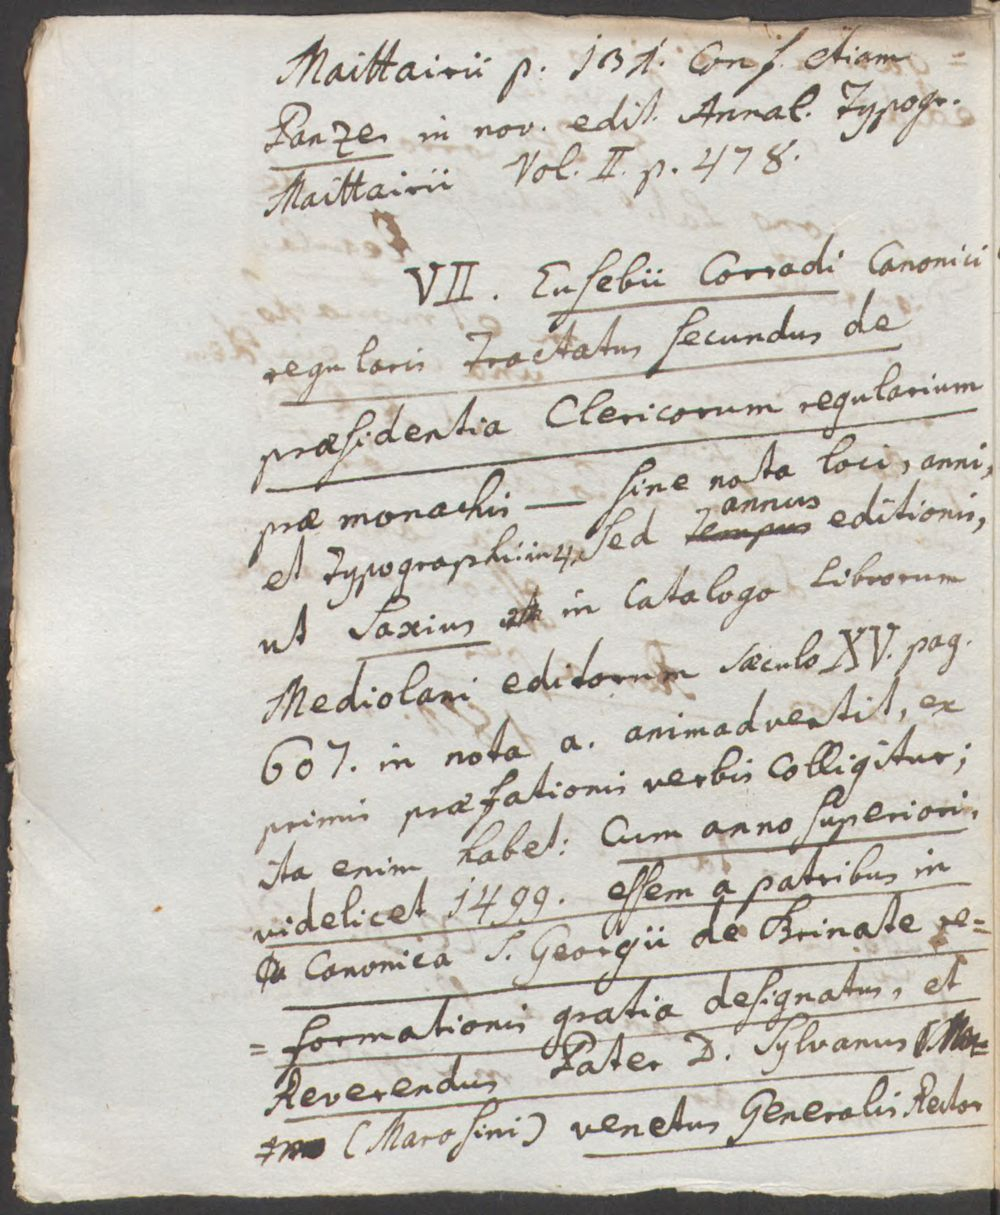 Maittairii p. 131. Conf. etiam
Panzer in nov. edit. Annal. Typogr.
Maittairii Vol. II. p. 478.
VII. Eusebii Corradi Canonici
regularis Tractatus secundus de
præsidentia Clericorum regularium
præ monachis — sine nota loci, anni,
et Typographi: in 4. Sed annus editionis,
ut Saxius in Catalogo Librorum
Mediolani editorum sæculo XV. pag.
607. in nota a. animadvertit, ex
primis præfationis verbis colligitur;
ita enim habet: Cum anno superiori,
videlicet 1499. essem a patribus in
Canonica S. Georgii de Brinate re=
=formationis gratia designatus, et
Reverendus Pater D. Sylvanus
(Marosini) venetus Generalis Rector